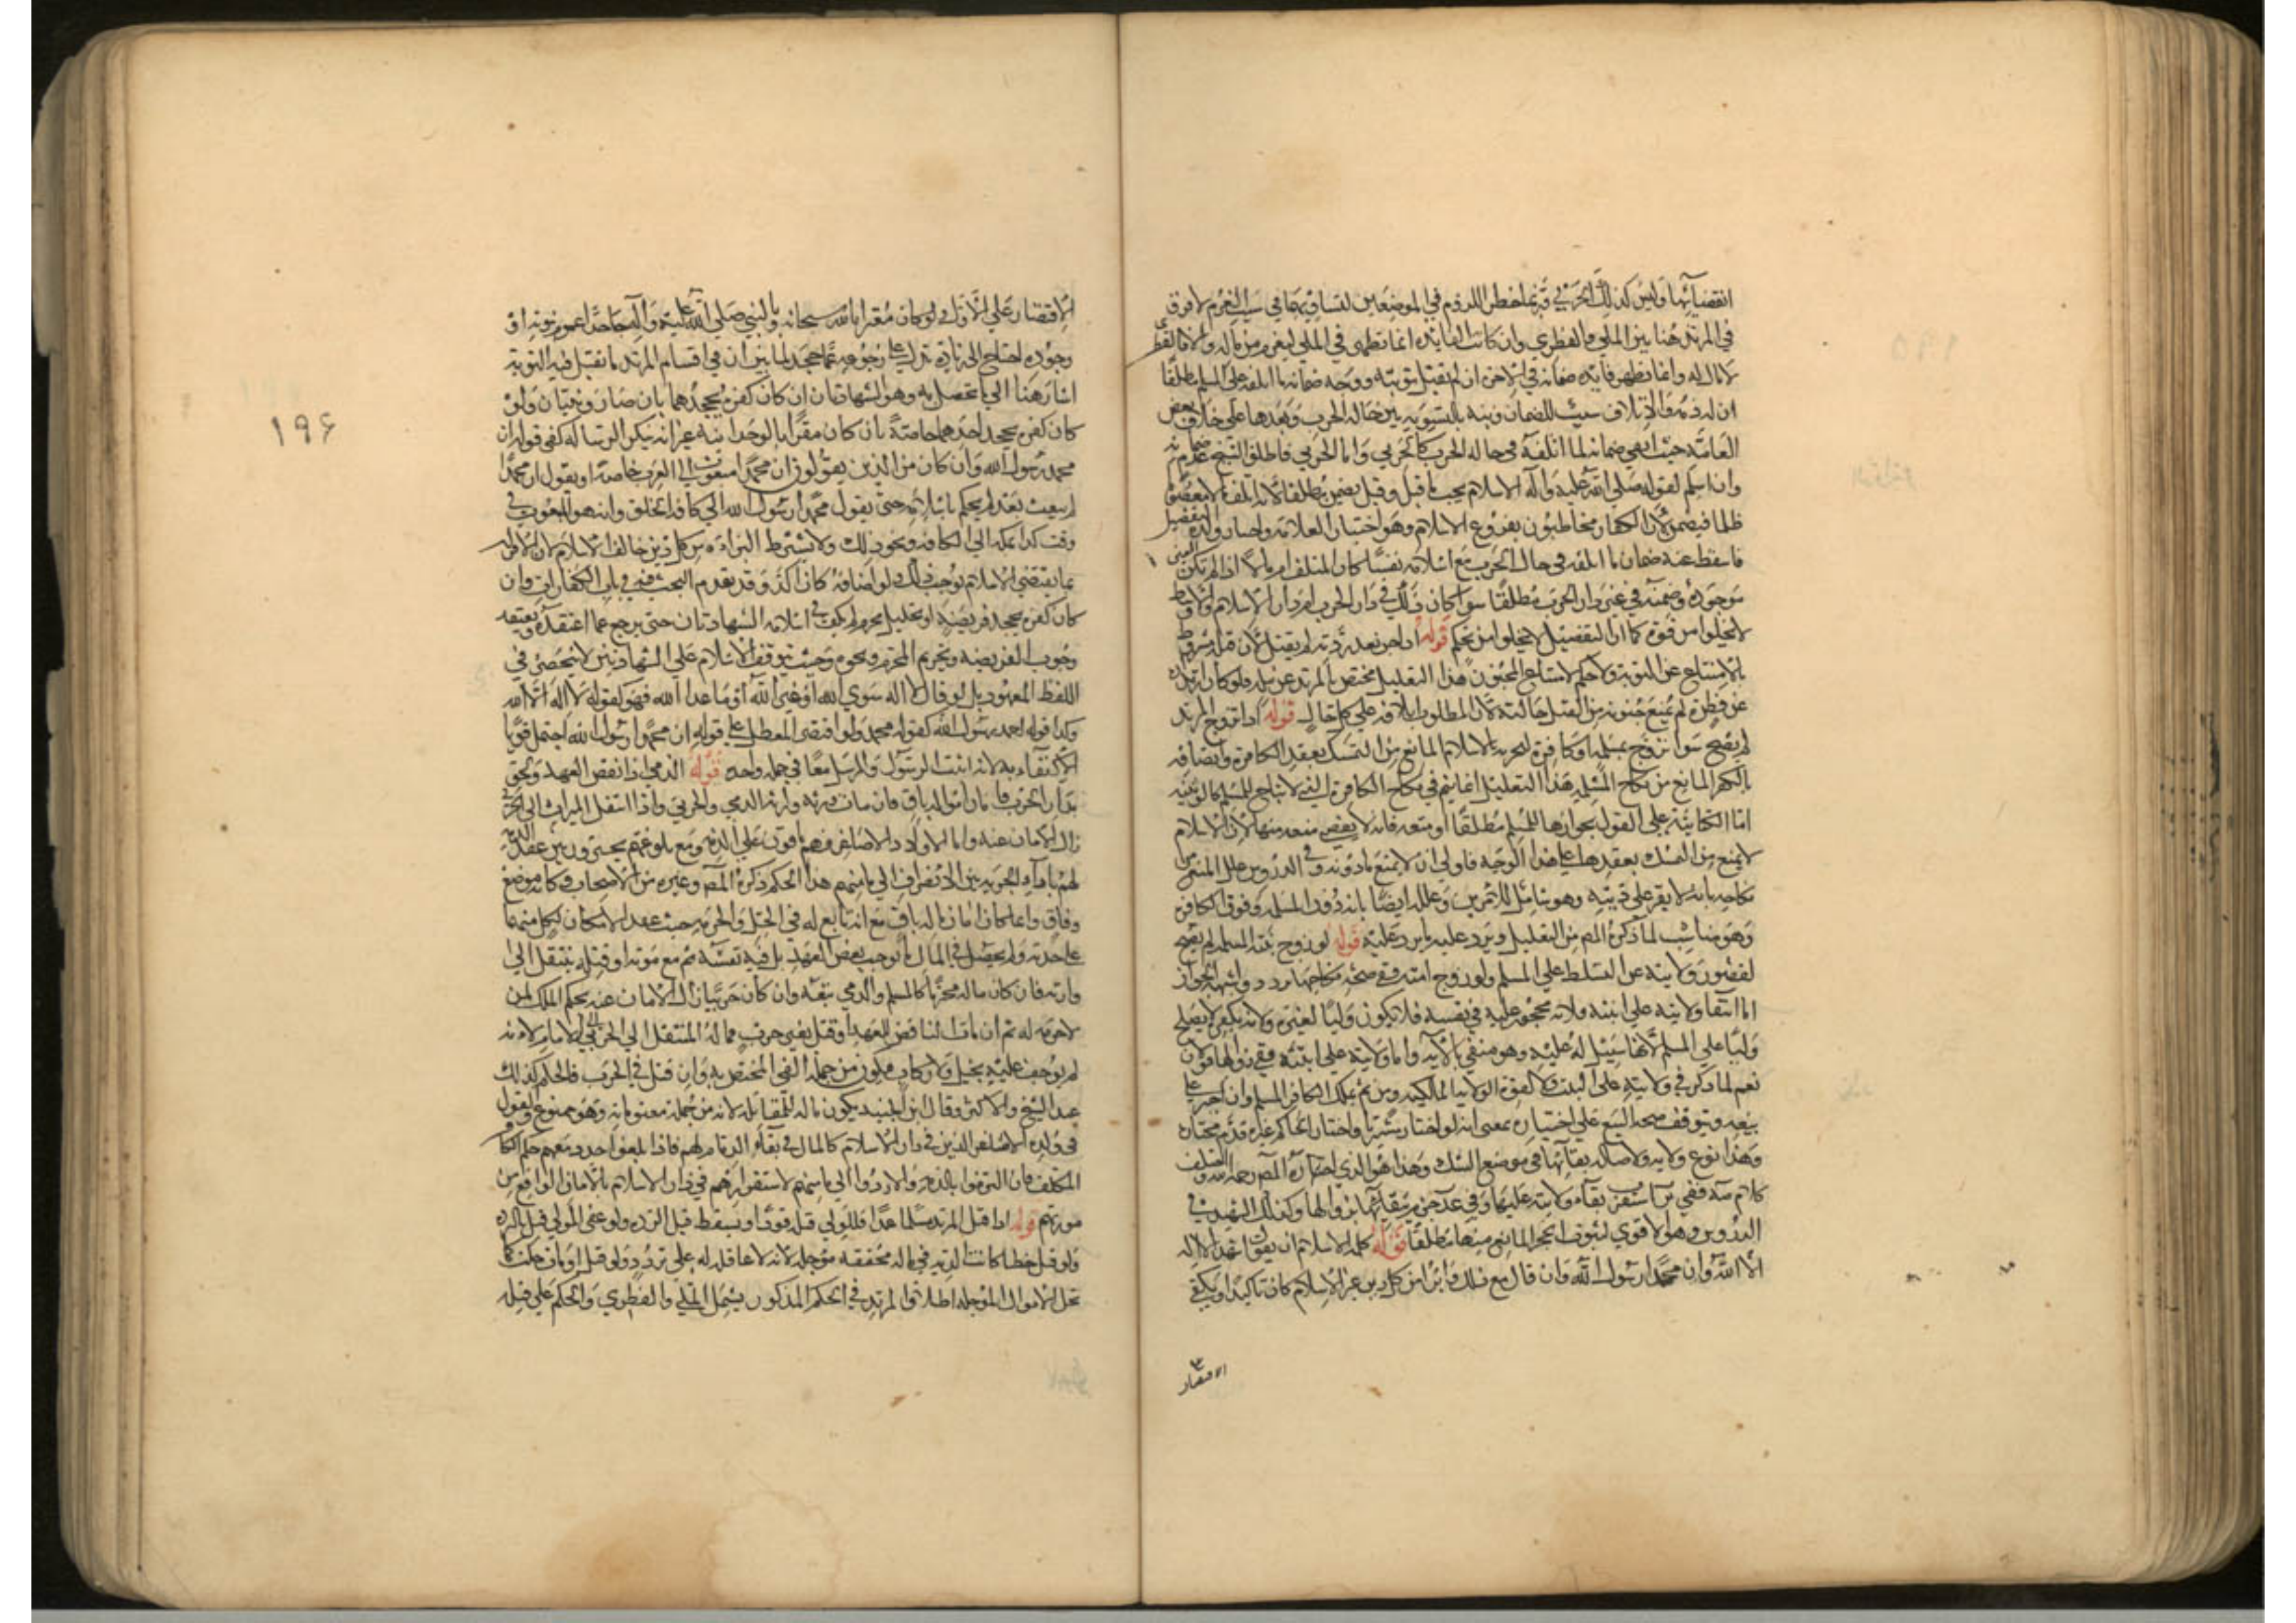 انقضائها وليس كذلك الحربي فربما خص اللزوم في الموضعين لتساويهما في سبب الغرم لا فرق
في المرتد هنا بين الملي والفطري وان كانت الفايدة انما تظهر في الملي ليغرم من ماله والا فالفطري
لا مال له وانما تظهر فايدة ضمانه في الاخرة ان لم تقبل توبته ووجه ضمانه ما اتلفه على المسلم مطلقا
ان له ذمة والاتلاف سبب للضمان ونبه بالتسوية بين حالة الحرب وبعدها على خلاف بعض
العامة حيث نفى ضمانه لما اتلفه في حالة الحرب كالحربي واما الحربي فاطلق الشيخ عدم ضمانه
وان اسلم لقوله صلى الله عليه وآله الاسلام يجب ما قبله وقيل يضمن مطلقا لانه اتلف مالا معصوما
ظلما فيضمن لان الكفار مخاطبون بفروع الاسلام وهو اختيار العلامة واختار ولده التفصيل
فاسقط عنه ضمان ما اتلفه في حال الحرب مع اسلامه نفسا كان المتلف ام مالا اذا لم تكن العين
موجودة وضمنه في غير دار الحرب مطلقا سوا كان ذلك في دار الحرب ام دار الاسلام والاول
لا يخلوا من قوة كما ان التفصيل لا يخلوا من تحكم قوله اذا جن بعد ردته لم يقتل لان قتله مشروط
بالامتناع عن التوبة ولا حكم لامتناع المجنون هذا التعليل مختص بالمرتد عن ملة فلو كان ارتداده
عن فطرة لم يمنع جنونه من القتل حالته لان المطلوب اتلافه على كل حال قوله اذا تزوج المرتد
لم يصح سوا تزوج بمسلمة او كافرة لتحرمه بالاسلام المانع من التمسك بعقد الكافرة واتصافه
بالكفر المانع من نكاح المسلمة هذا التعليل انما يتم في نكاح الكافرة التي لا تباح للمسلم كالوثنية
اما الكتابية على القول بجوازها للمسلم مطلقا او متعة فانه لا يقتضي منعه منها لان الاسلام
لا يمنع من التمسك بعقدها على هذا الوجه فاولى ان لا يمنع مادونه وفي الدروس علل المنع من
نكاحه بانه لا يقر على دينه وهو شامل للامرين وعلله ايضا بانه دون المسلمة وفوق الكافرة
وهو مناسب لما ذكره المص من التعليل ويرد عليه ما يرد عليه قوله لو زوج بنته المسلمة لم يصح
لقصور ولايته عن التسلط على المسلم ولو زوج امته ففي صحة نكاحها تردد واشبهه الجواز
اما انتفا ولايته على ابنته فلانه محجور عليه في نفسه فلا يكون وليا لغيره ولانه بكفره لا يصلح
وليا على المسلم لانها سبيل له عليه وهو منفي بالآية واما ولايته على امته ففي زوالها قولان
نعم لما ذكر في ولايته على البنت ولا لقوة الولاية المالكية ومن ثم يملك الكافر المسلم وان اجبر على
بيعه ويتوقف صحة البيع على اختياره بمعنى انه لو اختار مشتريا واختار الحاكم غيره قدم مختاره
وهذا نوع ولاية ولاصالة بقائها في موضع الشك وهذا هو الذي اختاره المصر رحمه الله واختلف
كلام العلامة ففي استقر بقاء ولايته عليها وفي عد جزم بزوالها وكذلك الشهيد في
الدروس وهو الاقوى لثبوت الحجر المانع منها مطلقا قوله كلمة الاسلام ان يقول اشهد ان لا اله
الا الله وان محمدا رسول الله وان قال مع ذلك وابرا من كل دين غير الاسلام كان تاكيدا ويكفي
الاقتصار
الاقتصار على الاول ولو كان مقرا بالله سبحانه وبالنبي صلى الله عليه وآله جاحدا عموم نبوته او
وجوده احتاج الى زيادة تدل على رجوعه عما جحد لما بين ان في اقسام المرتد ما تقبل فيه التوبة
اشار هنا الى ما تحصل به وهو الشهادتان ان كان كفره بجحدهما بان صار وثنيا ولو
كان كفره بجحد احدهما خاصة بان كان مقرا بالوحدانية غير انه ينكر الرسالة كفى قوله ان
محمد رسول الله وان كان من الذين يقولون ان محمدا مبعوث الى العرب خاصة او يقول ان محمدا
لم يبعث بعد لم يحكم باسلامه حتى يقول محمدا رسول الله الى كافة الخلق وانه هو المبعوث في
وقت كذا بمكة الى الكافة ونحو ذلك ولا يشترط البراءة من كل دين خالف الاسلام لان الاقرار
بما يقتضي الاسلام يوجب ذلك ولو اضافه كان آكد وقد تقدم البحث فيه في باب الكفارات وان
كان كفره بجحد فريضة او تحليل محرم لم يكف في اسلامه الشهادتان حتى يرجع عما اعتقده ويعتقد
وجوب الفريضة وتحريم المحرم ونحوه وحيث يتوقف الاسلام على الشهادتين لا ينحصر في
اللفظ المعهود بل لو قال لا اله سوى الله او غير الله او ما عدا الله فهو كقوله لا اله الا الله
وكذا قوله احمد رسول الله كقوله محمد ولو اقتصر المعطل على قوله ان محمدا رسول الله احتمل قويا
الاكتفاء به لانه اثبت الرسول والمرسل معا في جملة واحدة قوله الذمي اذا نقض العهد ولحق
بدار الحرب فامان امواله باق فان مات ورثه وارثه الذمي والحربي واذا انتقل الميراث الى الحربي
زال الامان عنه واما الاولاد الاصاغر فهم باقون على الذمة ومع بلوغهم يخيرون بين عقد الذمة
لهم باداء الجزية وبين الانصراف الى مامنهم هذا الحكم ذكره المص وغيره من الاصحاب وكانه موضع
وفاق وانما كان امان ماله باق مع انه تابع له في الحل والحرمة حيث عقد الامان لكل منهما
على حدته ولم يحصل في المال ما يوجب نقض العهد بل فيه نفسه ثم مع موته او قتله ينتقل الى
وارثه فان كان ماله محترما كالمسلم والذمي بقي وان كان حربيا زال الامان عنه بحكم الملك لمن
لا حرمة له ثم ان مات الناقض للعهد او قتل بغير حرب فماله المنتقل الى الحربي للامام لانه
لم يوجف عليه بخيل ولا ركاب فيكون من جملة الفئ المختص به وان قتل في الحرب فالحكم كذلك
عند الشيخ والاكثر وقال ابن الجنيد يكون ماله للمقاتلة لانه من جملة مغنوماته وهو ممنوع والقول
في ولده الاصاغر الذين في دار الاسلام كالمال في بقاء الذمام لهم فاذا بلغوا حد ومعهم حكم الكفار
المكلف فان التزموا بالذمة والا ردوا الى مامنهم لاستقرارهم في دار الاسلام بالامان الواقع من
مورثهم قوله اذا قتل المرتد مسلما عمدا فللولي قتله قودا ويسقط قتل الردة ولو عفى الولي قتل بالردة
ولو قتل خطا كانت الدية في ماله مخففة موجلة لانه لا عاقلة له على تردد ولو قتل او مات حلت كما
تحل الاموال الموجلة اطلاق المرتد في الحكم المذكور يشمل الملي والفطري والحكم على قتله
١٩٦